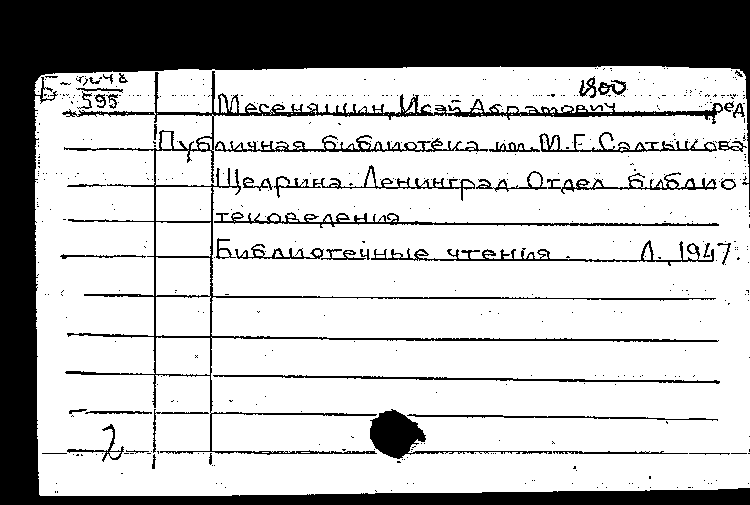 1800
Б-
595
Месеняшин, Исай Абрамович, ред
Публичная библиотека им. М.Е. Салтыкова
Щедрина. Ленинград. Отдел библио-
тековедения
Библиотечные чтения. Л., 1947.
2